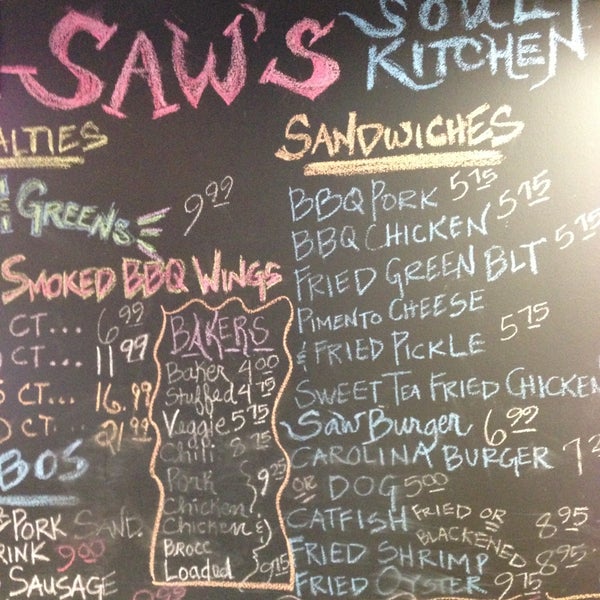 SAW'S SOUL KITCHEN
ALTIES
GREENS 9.99
SMOKED BBQ WINGS
CT... 6.99
CT... 11.99
CT... 16.99
CT... 21.99
BOS
PORK SAND.
RINK 9.00
SAUSAGE
BAKERS
Baker 4.00
Stuffed 4.75
Veggie 5.75
Chili 8.75
Pork
Chicken 9.25
Chicken &
Brocc
Loaded 9.75
SANDWICHES
BBQ PORK 5.75
BBQ CHICKEN 5.75
FRIED GREEN BLT 5.75
PIMENTO CHEESE
& FRIED PICKLE 5.75
SWEET TEA FRIED CHICKEN
SAW BURGER 6.99
CAROLINA BURGER 7.2
OR DOG 5.00
CATFISH FRIED OR BLACKENED 8.95
FRIED SHRIMP 8.95
FRIED OYSTER 9.75